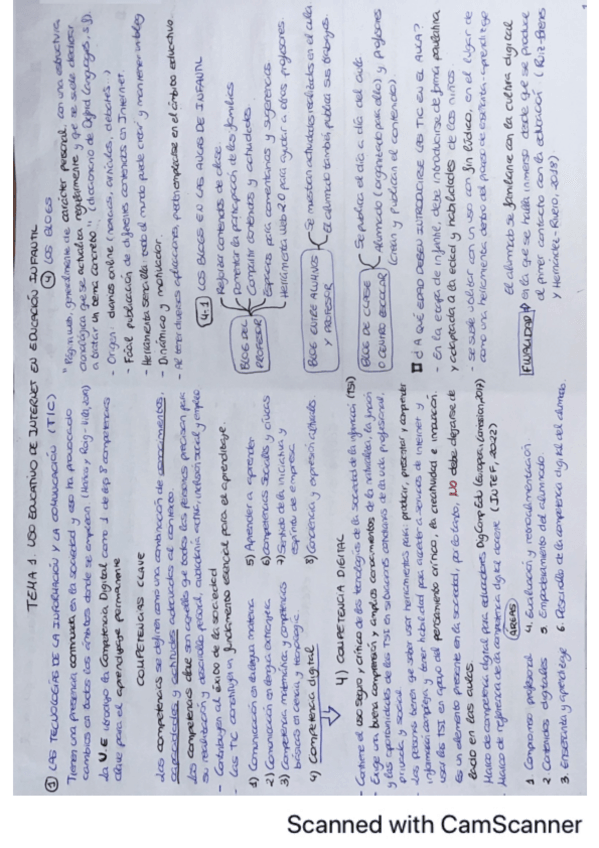 TEMA 1. USO EDUCATIVO DE INTERNET EN EDUCACIÓN INFANTIL
1 LAS TECNOLOGÍAS DE LA INFORMACIÓN Y LA COMUNICACIÓN (TIC)
Tienen una presencia continuada en la sociedad y eso ha provocado
cambios en todos los ámbitos donde se emplean
La U.E incorporó la Competencia Digital como 1 de las 8 competencias
clave para el aprendizaje permanente
COMPETENCIAS CLAVE
Las competencias se definen como una combinación de conocimientos,
capacidades y actitudes adecuadas al contexto.
Las competencias clave son aquellas que todas las personas precisan para
su realización y desarrollo personal, ciudadanía activa, inclusión social y empleo
- Contribuyen al éxito de la sociedad
- Las TIC constituyen un fundamento esencial para el aprendizaje.
1) Comunicación en la lengua materna
2) Comunicación en lengua extranjera
3) Competencia matemática y competencias
básicas en ciencia y tecnología.
4) Competencia digital
5) Aprender a aprender
6) Competencias sociales y cívicas
7) Sentido de la iniciativa y
espíritu de empresa
8) Conciencia y expresión culturales
4) COMPETENCIA DIGITAL
- Contiene el uso seguro y crítico de las tecnologías de la sociedad de la información (TSI)
- Exige una buena comprensión y amplios conocimientos de la naturaleza, la función
y las oportunidades de las TSI en situaciones cotidianas de la vida profesional,
privada y social.
- Las personas tienen que saber usar herramientas para producir, presentar y comprender
información compleja y tener habilidad para acceder a servicios de Internet y
usar las TSI en apoyo del pensamiento crítico, la creatividad e innovación.
Es un elemento presente en la sociedad, por lo tanto, NO debe dejarse de
lado en las aulas
Marco de competencia digital para educadores DigCompEdu (European Comission, 2017)
Marco de referencia de la competencia digital docente (INTEF, 2022)
ÁREAS
1. Compromiso profesional
2. Contenidos digitales
3. Enseñanza y aprendizaje
4. Evaluación y retroalimentación
5. Empoderamiento del alumnado
6. Desarrollo de la competencia digital del alumnado.
4 LOS BLOGS
"Página web, generalmente de carácter personal, con una estructura
cronológica que se actualiza regularmente y que se suele dedicar
a tratar un tema concreto" (diccionario de Oxford Languages, s.f).
- Origen: diarios online (noticias, artículos, debates..)
- Fácil publicación de diferentes contenidos en Internet.
- Herramienta sencilla: todo el mundo puede crear y mantener un blog
- Dinámico y motivador.
- Al tener diversas aplicaciones, podría emplearse en el ámbito educativo.
4.1 LOS BLOGS EN LAS AULAS DE INFANTIL
BLOG DEL
PROFESOR
Reforzar contenidos de clase.
Fomentar la participación de las familias
Compartir contenidos y actividades
Espacios para comentarios y sugerencias
Herramienta Web 2.0 para ayudar a otros profesores
BLOG ENTRE ALUMNOS
Y PROFESOR
Se muestran actividades realizadas en el aula
El alumnado también publica sus trabajos.
BLOG DE CLASE
O CENTRO ESCOLAR
Se publica el día a día del aula
Alumnado (organizado para ello) y profesores
crean y publican el contenido).
¿A QUÉ EDAD DEBEN INTRODUCIRSE LAS TIC EN EL AULA?
- En la etapa de infantil, debe introducirse de forma paulatina
y adaptada a la edad y habilidades de los niños.
- Se suele utilizar con un uso con fin lúdico, en el lugar de
como una herramienta dentro del proceso de enseñanza-aprendizaje
FINALIDAD
El alumnado se familiarice con la cultura digital
en la que se halla inmerso desde que se produce
el primer contacto con la educación
y Hernández-Rivero, 2018).
Scanned with CamScanner